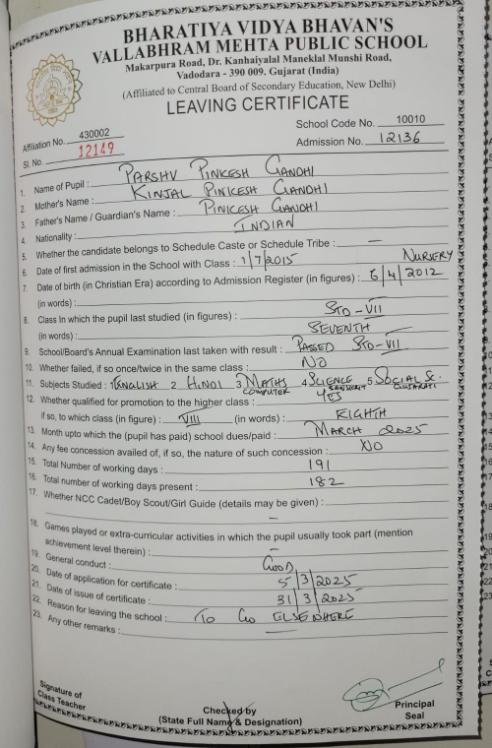 BHARATIYA VIDYA BHAVAN'S
VALLABHRAM MEHTA PUBLIC SCHOOL
Makarpura Road, Dr. Kanhaiyalal Maneklal Munshi Road,
Vadodara - 390 009. Gujarat (India)
(Affiliated to Central Board of Secondary Education, New Delhi)
LEAVING CERTIFICATE
Affiliation No. 430002 School Code No. 10010
Sl. No. 12149 Admission No. 12136
1. Name of Pupil : PARSHV PINKESH GANDHI
2. Mother's Name : KINJAL PINKESH GANDHI
3. Father's Name / Guardian's Name : PINKESH GANDHI
4. Nationality : INDIAN
5. Whether the candidate belongs to Schedule Caste or Schedule Tribe : —
6. Date of first admission in the School with Class : 1/7/2015 NURSERY
7. Date of birth (in Christian Era) according to Admission Register (in figures) : 6/4/2012
(in words) :
8. Class In which the pupil last studied (in figures) : STD - VII
(in words) : SEVENTH
9. School/Board's Annual Examination last taken with result : PASSED STD-VII
10. Whether failed, if so once/twice in the same class : NO
11. Subjects Studied : 1 ENGLISH 2 HINDI 3 MATHS 4 SCIENCE 5 SOCIAL Sc.
COMPUTER SANSKRIT GUJARATI
12. Whether qualified for promotion to the higher class : YES
if so, to which class (in figure) : VIII (in words) : EIGHTH
13. Month upto which the (pupil has paid) school dues/paid : MARCH 2025
14. Any fee concession availed of, if so, the nature of such concession : NO
15. Total Number of working days : 191
16. Total number of working days present : 182
17. Whether NCC Cadet/Boy Scout/Girl Guide (details may be given) :
—
18. Games played or extra-curricular activities in which the pupil usually took part (mention
achievement level therein) : —
19. General conduct : GOOD
20. Date of application for certificate : 5/3/2025
21. Date of issue of certificate : 31/3/2025
22. Reason for leaving the school : TO GO ELSEWHERE
23. Any other remarks : —
Signature of
Class Teacher
Checked by
(State Full Name & Designation)
Principal
Seal